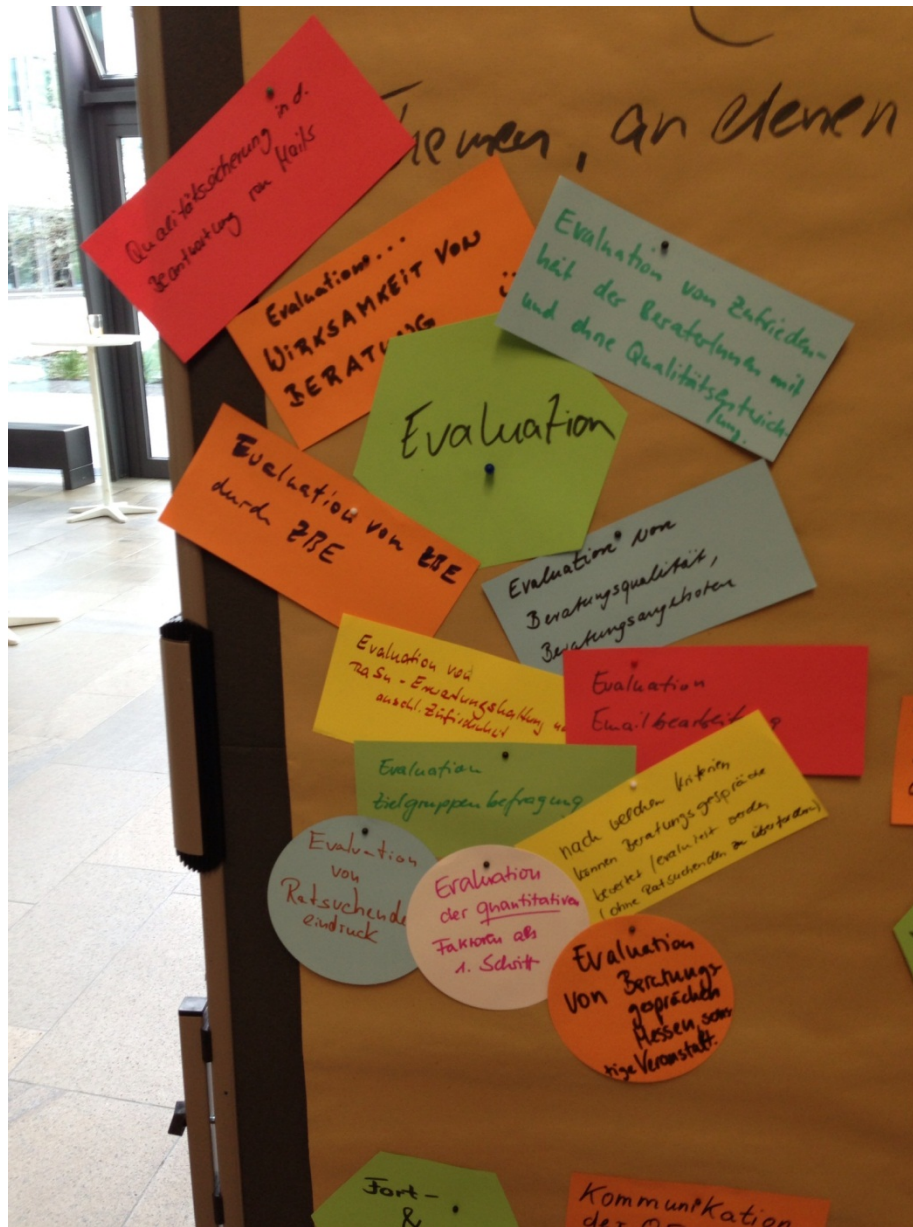 Themen, an denen
Qualitätssicherung in d.
Beantwortung von Mails
Evaluations...
WIRKSAMKEIT VON
BERATUNG
Evaluation von Zufrieden-
heit der BeraterInnen mit
und ohne Qualitätsentwick-
lung.
Evaluation
Evaluation von ZBE
durch ZBE
Evaluation von
Beratungsqualität,
Beratungsangeboten
Evaluation von
RaSu - Erwartungshaltung
anschl. Zufriedenheit
Evaluation
Emailbearbeitung
Evaluation
Zielgruppenbefragung
nach welchen Kriterien
können Beratungsgespräche
bewertet / evaluiert werden
(ohne Ratsuchenden zu überfordern)
Evaluation
von
Ratsuchenden
eindruck
Evaluation
der quantitativen
Faktoren als
1. Schritt
Evaluation
von Beratungs
gesprächen
Messen, sons
tige Veranstalt.
Fort-
&
Kommunikation